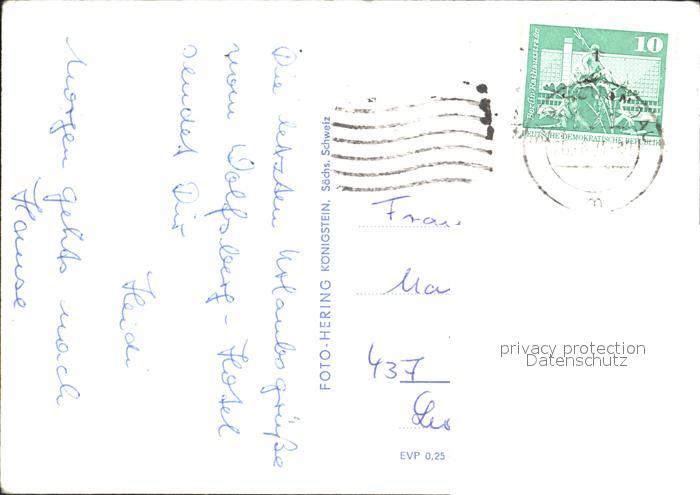 Die letzten Urlaubsgrüße
vom Wolfsberg-Hotel
sendet Dir
Heidi
Morgen gehts nach
Hause.
FOTO-HERING KÖNIGSTEIN, Sächs. Schweiz
10
Berlin, Rathausstraße
DEUTSCHE DEMOKRATISCHE REPUBLIK
Frau
Ma
437
EVP 0,25
privacy protection
Datenschutz